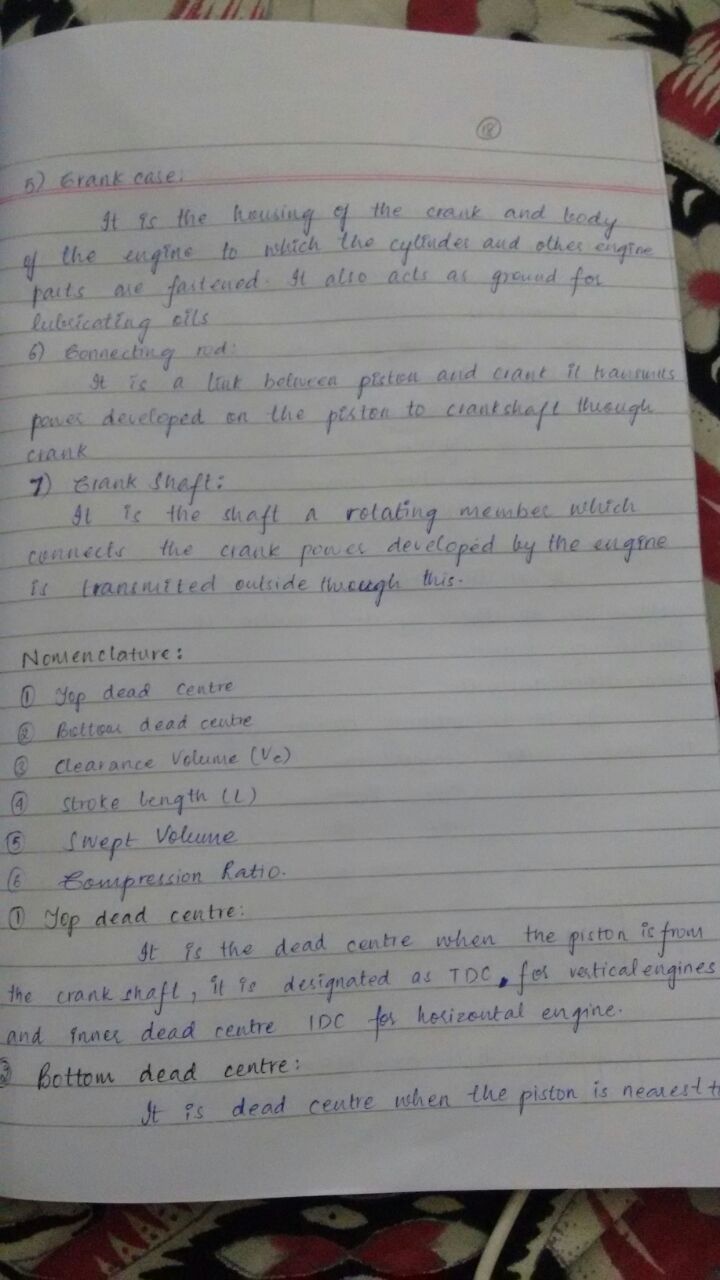 18
5) Crank case:
It is the housing of the crank and body
of the engine to which the cylinder and other engine
parts are fastened. It also acts as ground for
lubricating oils
6) Connecting rod:
It is a link between piston and crank it transmits
power developed on the piston to crankshaft through
crank
7) Crank Shaft:
It is the shaft a rotating member which
connects the crank power developed by the engine
is transmitted outside through this.
Nomenclature:
① Top dead centre
② Bottom dead centre
③ Clearance Volume (Vc)
④ Stroke length (L)
⑤ Swept Volume
⑥ Compression Ratio.
① Top dead centre:
It is the dead centre when the piston is from
the crank shaft, it is designated as TDC, for vertical engines
and inner dead centre IDC for horizontal engine.
② Bottom dead centre:
It is dead centre when the piston is nearest to